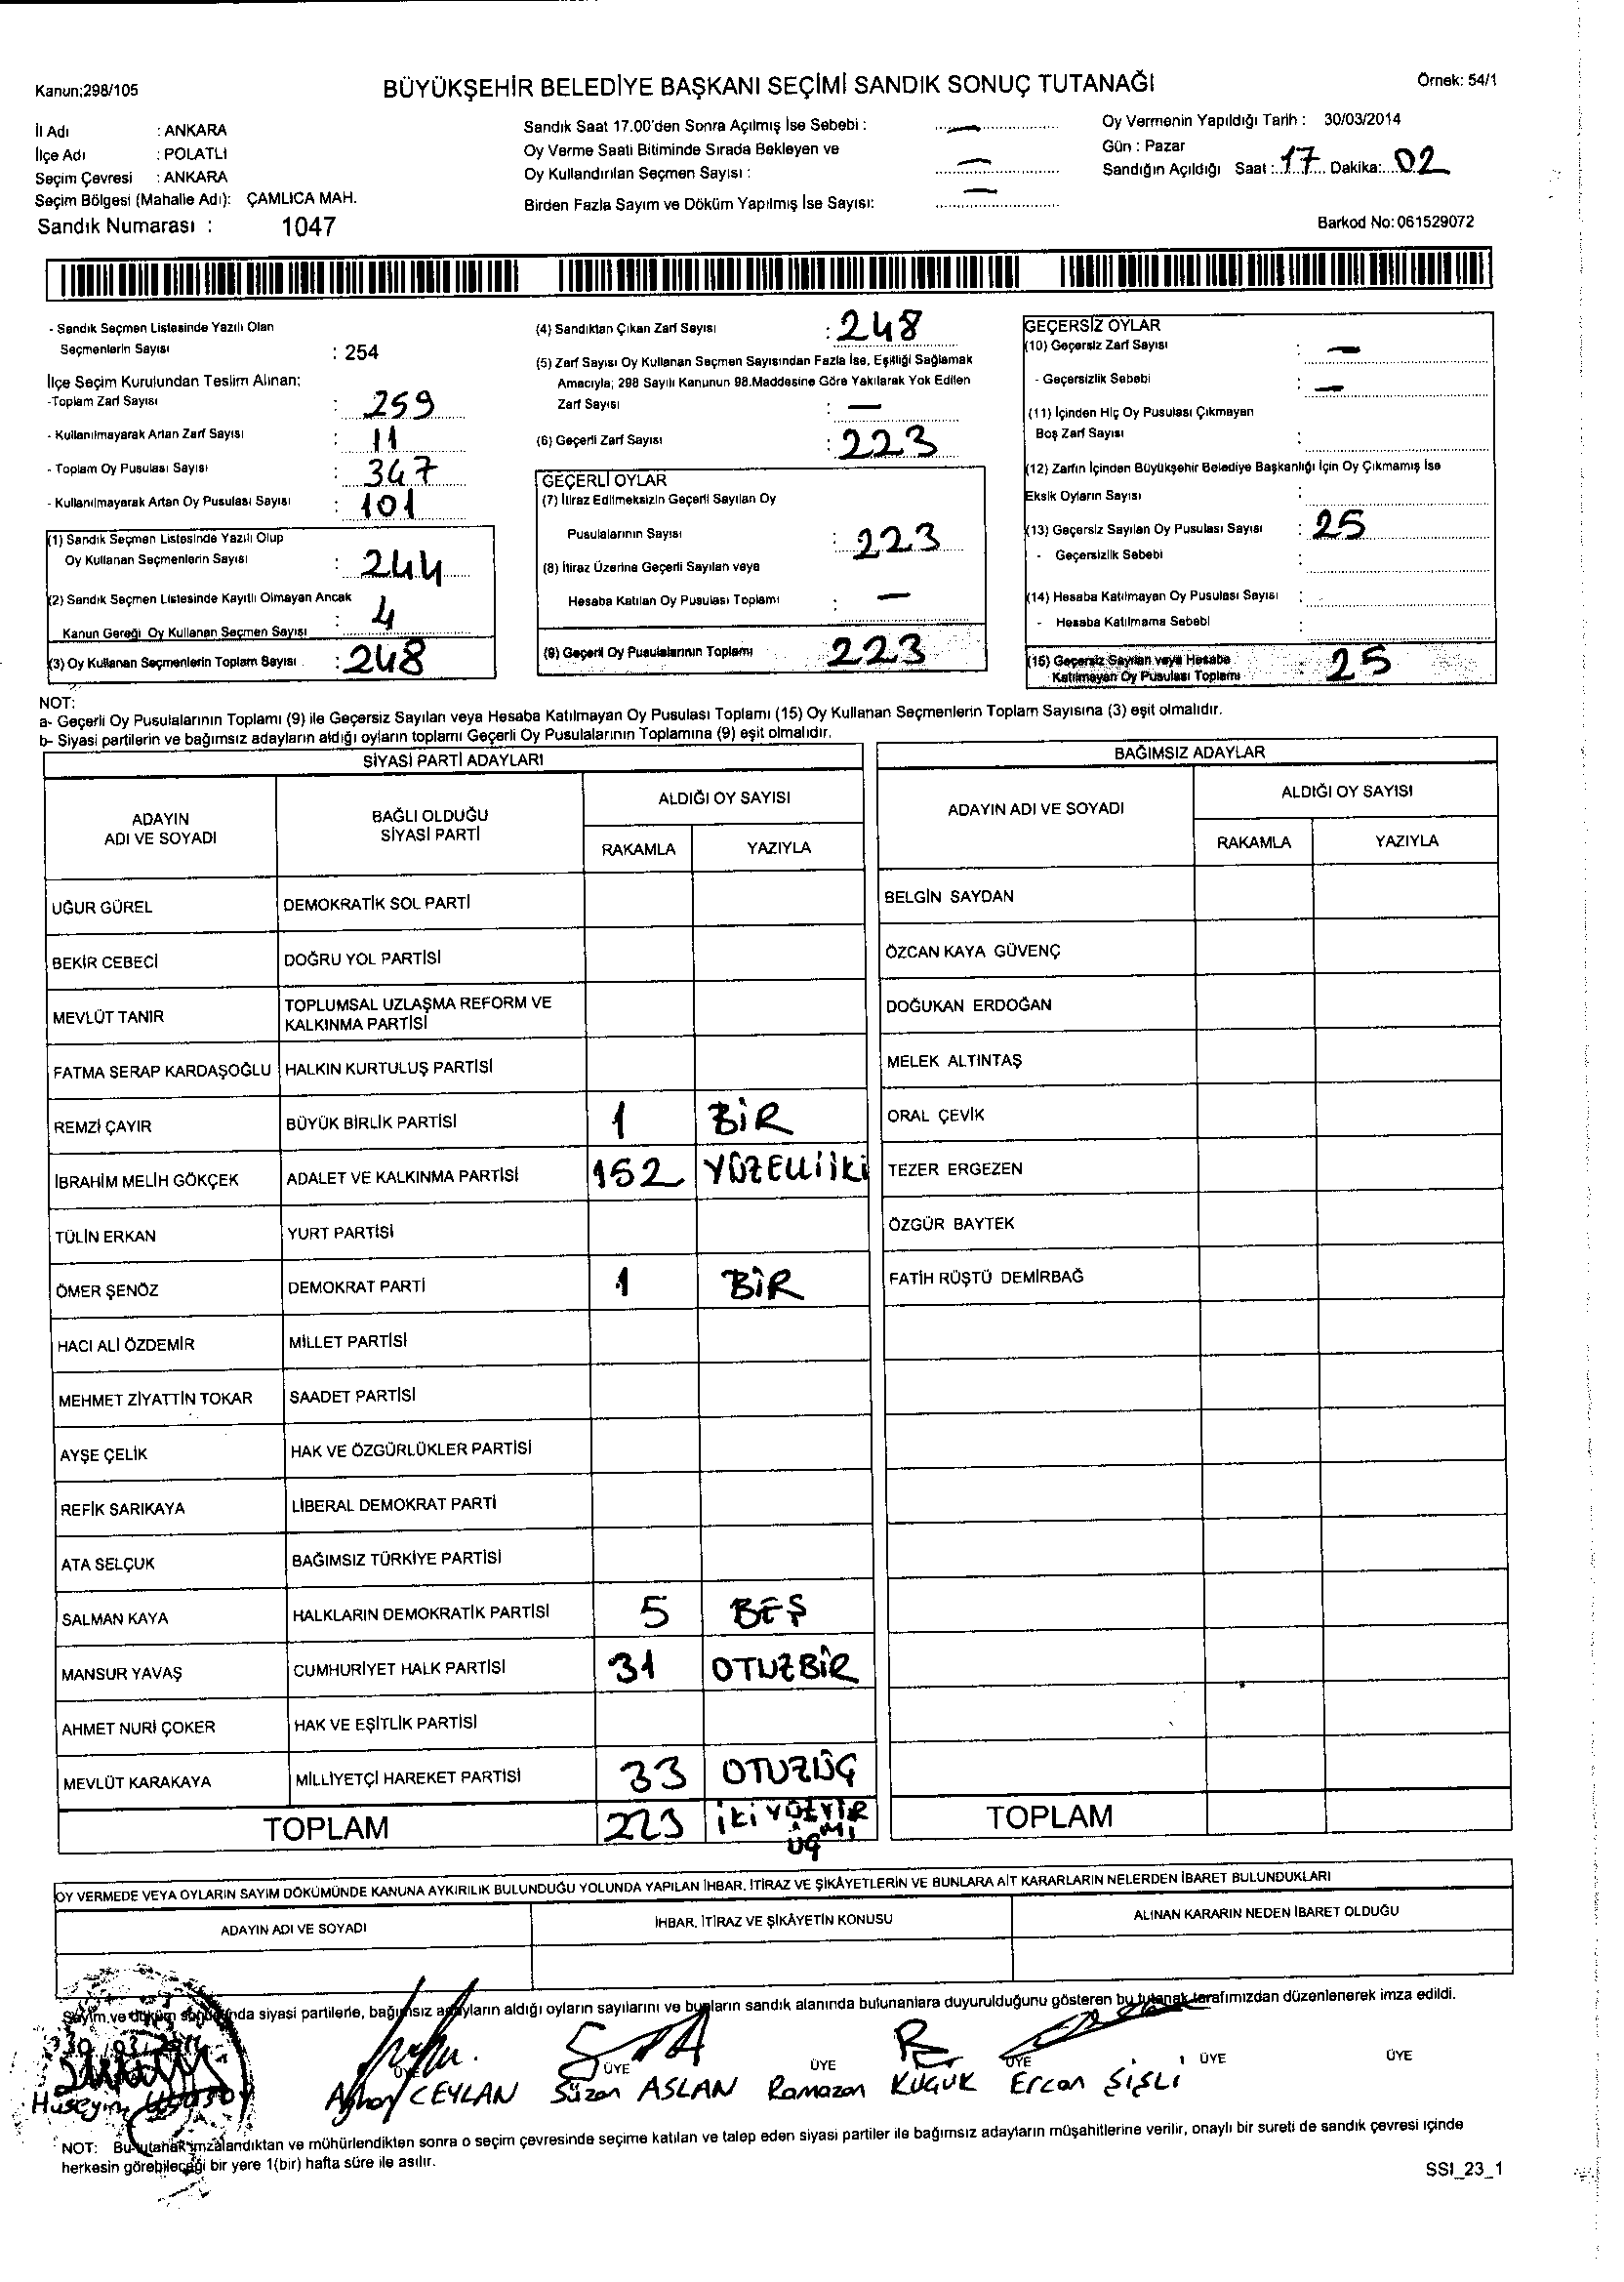 Kanun;298/105
BÜYÜKŞEHİR BELEDİYE BAŞKANI SEÇİMİ SANDIK SONUÇ TUTANAĞI
Örnek: 54/1
İl Adı : ANKARA
İlçe Adı : POLATLI
Seçim Çevresi : ANKARA
Seçim Bölgesi (Mahalle Adı): ÇAMLICA MAH.
Sandık Numarası : 1047
Sandık Saat 17.00'den Sonra Açılmış İse Sebebi : —
Oy Verme Saati Bitiminde Sırada Bekleyen ve
Oy Kullandırılan Seçmen Sayısı : —
Birden Fazla Sayım ve Döküm Yapılmış İse Sayısı: —
Oy Vermenin Yapıldığı Tarih : 30/03/2014
Gün : Pazar
Sandığın Açıldığı Saat : 17 Dakika: 02
Barkod No: 061529072
- Sandık Seçmen Listesinde Yazılı Olan
Seçmenlerin Sayısı : 254
İlçe Seçim Kurulundan Teslim Alınan:
-Toplam Zarf Sayısı : 259
- Kullanılmayarak Artan Zarf Sayısı : 11
- Toplam Oy Pusulası Sayısı : 347
- Kullanılmayarak Artan Oy Pusulası Sayısı : 101
(1) Sandık Seçmen Listesinde Yazılı Olup
Oy Kullanan Seçmenlerin Sayısı : 244
(2) Sandık Seçmen Listesinde Kayıtlı Olmayan Ancak
Kanun Gereği Oy Kullanan Seçmen Sayısı : 4
(3) Oy Kullanan Seçmenlerin Toplam Sayısı : 248
(4) Sandıktan Çıkan Zarf Sayısı : 248
(5) Zarf Sayısı Oy Kullanan Seçmen Sayısından Fazla İse, Eşitliği Sağlamak
Amacıyla; 298 Sayılı Kanunun 98.Maddesine Göre Yakılarak Yok Edilen
Zarf Sayısı : —
(6) Geçerli Zarf Sayısı : 223
GEÇERLİ OYLAR
(7) İtiraz Edilmeksizin Geçerli Sayılan Oy
Pusulalarının Sayısı : 223
(8) İtiraz Üzerine Geçerli Sayılan veya
Hesaba Katılan Oy Pusulası Toplamı : —
(9) Geçerli Oy Pusulalarının Toplamı 223
GEÇERSİZ OYLAR
(10) Geçersiz Zarf Sayısı : —
- Geçersizlik Sebebi : —
(11) İçinden Hiç Oy Pusulası Çıkmayan
Boş Zarf Sayısı :
(12) Zarfın İçinden Büyükşehir Belediye Başkanlığı İçin Oy Çıkmamış İse
Eksik Oyların Sayısı :
(13) Geçersiz Sayılan Oy Pusulası Sayısı : 25
- Geçersizlik Sebebi :
(14) Hesaba Katılmayan Oy Pusulası Sayısı :
- Hesaba Katılmama Sebebi :
(15) Geçersiz Sayılan veya Hesaba
Katılmayan Oy Pusulası Toplamı : 25
NOT:
a- Geçerli Oy Pusulalarının Toplamı (9) ile Geçersiz Sayılan veya Hesaba Katılmayan Oy Pusulası Toplamı (15) Oy Kullanan Seçmenlerin Toplam Sayısına (3) eşit olmalıdır.
b- Siyasi partilerin ve bağımsız adayların aldığı oyların toplamı Geçerli Oy Pusulalarının Toplamına (9) eşit olmalıdır.
SİYASİ PARTİ ADAYLARI
ADAYIN
ADI VE SOYADI
BAĞLI OLDUĞU
SİYASİ PARTİ
ALDIĞI OY SAYISI
RAKAMLA YAZIYLA
UĞUR GÜREL DEMOKRATİK SOL PARTİ
BEKİR CEBECİ DOĞRU YOL PARTİSİ
MEVLÜT TANIR TOPLUMSAL UZLAŞMA REFORM VE
KALKINMA PARTİSİ
FATMA SERAP KARDAŞOĞLU HALKIN KURTULUŞ PARTİSİ
REMZİ ÇAYIR BÜYÜK BİRLİK PARTİSİ 1 BİR
İBRAHİM MELİH GÖKÇEK ADALET VE KALKINMA PARTİSİ 152 YÜZELLİİKİ
TÜLİN ERKAN YURT PARTİSİ
ÖMER ŞENÖZ DEMOKRAT PARTİ 1 BİR
HACI ALİ ÖZDEMİR MİLLET PARTİSİ
MEHMET ZİYATTİN TOKAR SAADET PARTİSİ
AYŞE ÇELİK HAK VE ÖZGÜRLÜKLER PARTİSİ
REFİK SARIKAYA LİBERAL DEMOKRAT PARTİ
ATA SELÇUK BAĞIMSIZ TÜRKİYE PARTİSİ
SALMAN KAYA HALKLARIN DEMOKRATİK PARTİSİ 5 BEŞ
MANSUR YAVAŞ CUMHURİYET HALK PARTİSİ 31 OTUZBİR
AHMET NURİ ÇOKER HAK VE EŞİTLİK PARTİSİ
MEVLÜT KARAKAYA MİLLİYETÇİ HAREKET PARTİSİ 33 OTUZÜÇ
TOPLAM 223 İKİYÜZYİR
Mİ
ÜÇ
BAĞIMSIZ ADAYLAR
ADAYIN ADI VE SOYADI
ALDIĞI OY SAYISI
RAKAMLA YAZIYLA
BELGİN SAYDAN
ÖZCAN KAYA GÜVENÇ
DOĞUKAN ERDOĞAN
MELEK ALTINTAŞ
ORAL ÇEVİK
TEZER ERGEZEN
ÖZGÜR BAYTEK
FATİH RÜŞTÜ DEMİRBAĞ
TOPLAM
OY VERMEDE VEYA OYLARIN SAYIM DÖKÜMÜNDE KANUNA AYKIRILIK BULUNDUĞU YOLUNDA YAPILAN İHBAR, İTİRAZ VE ŞİKÂYETLERİN VE BUNLARA AİT KARARLARIN NELERDEN İBARET BULUNDUKLARI
ADAYIN ADI VE SOYADI İHBAR, İTİRAZ VE ŞİKÂYETİN KONUSU ALINAN KARARIN NEDEN İBARET OLDUĞU
Sayım ve döküm sonucunda siyasi partilerle, bağımsız adayların aldığı oyların sayılarını ve bunların sandık alanında bulunanlara duyurulduğunu gösteren bu tutanak tarafımızdan düzenlenerek imza edildi.
ÜYE ÜYE ÜYE ÜYE ÜYE ÜYE
Hüseyin CEYLAN Süzan ASLAN Ramazan KÜÇÜK Ercan ŞİŞLİ
NOT: Bu tutanak imzalandıktan ve mühürlendikten sonra o seçim çevresinde seçime katılan ve talep eden siyasi partiler ile bağımsız adayların müşahitlerine verilir, onaylı bir sureti de sandık çevresi içinde
herkesin görebileceği bir yere 1(bir) hafta süre ile asılır.
SSI_23_1